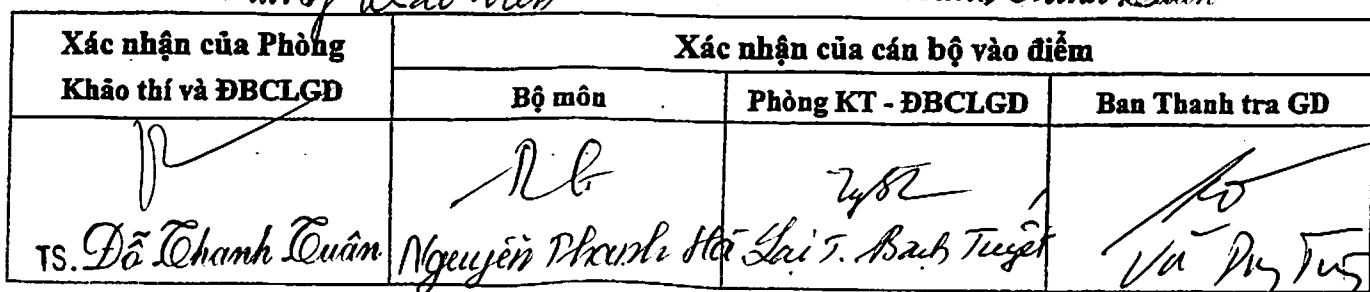 Xác nhận của Phòng
Khảo thí và ĐBCLGD
Xác nhận của cán bộ vào điểm
Bộ môn
Phòng KT - ĐBCLGD
Ban Thanh tra GD
TS. Đỗ Thanh Tuân
Nguyễn Thanh Hà
Lại T. Bạch Tuyết
Vũ Duy Tùng